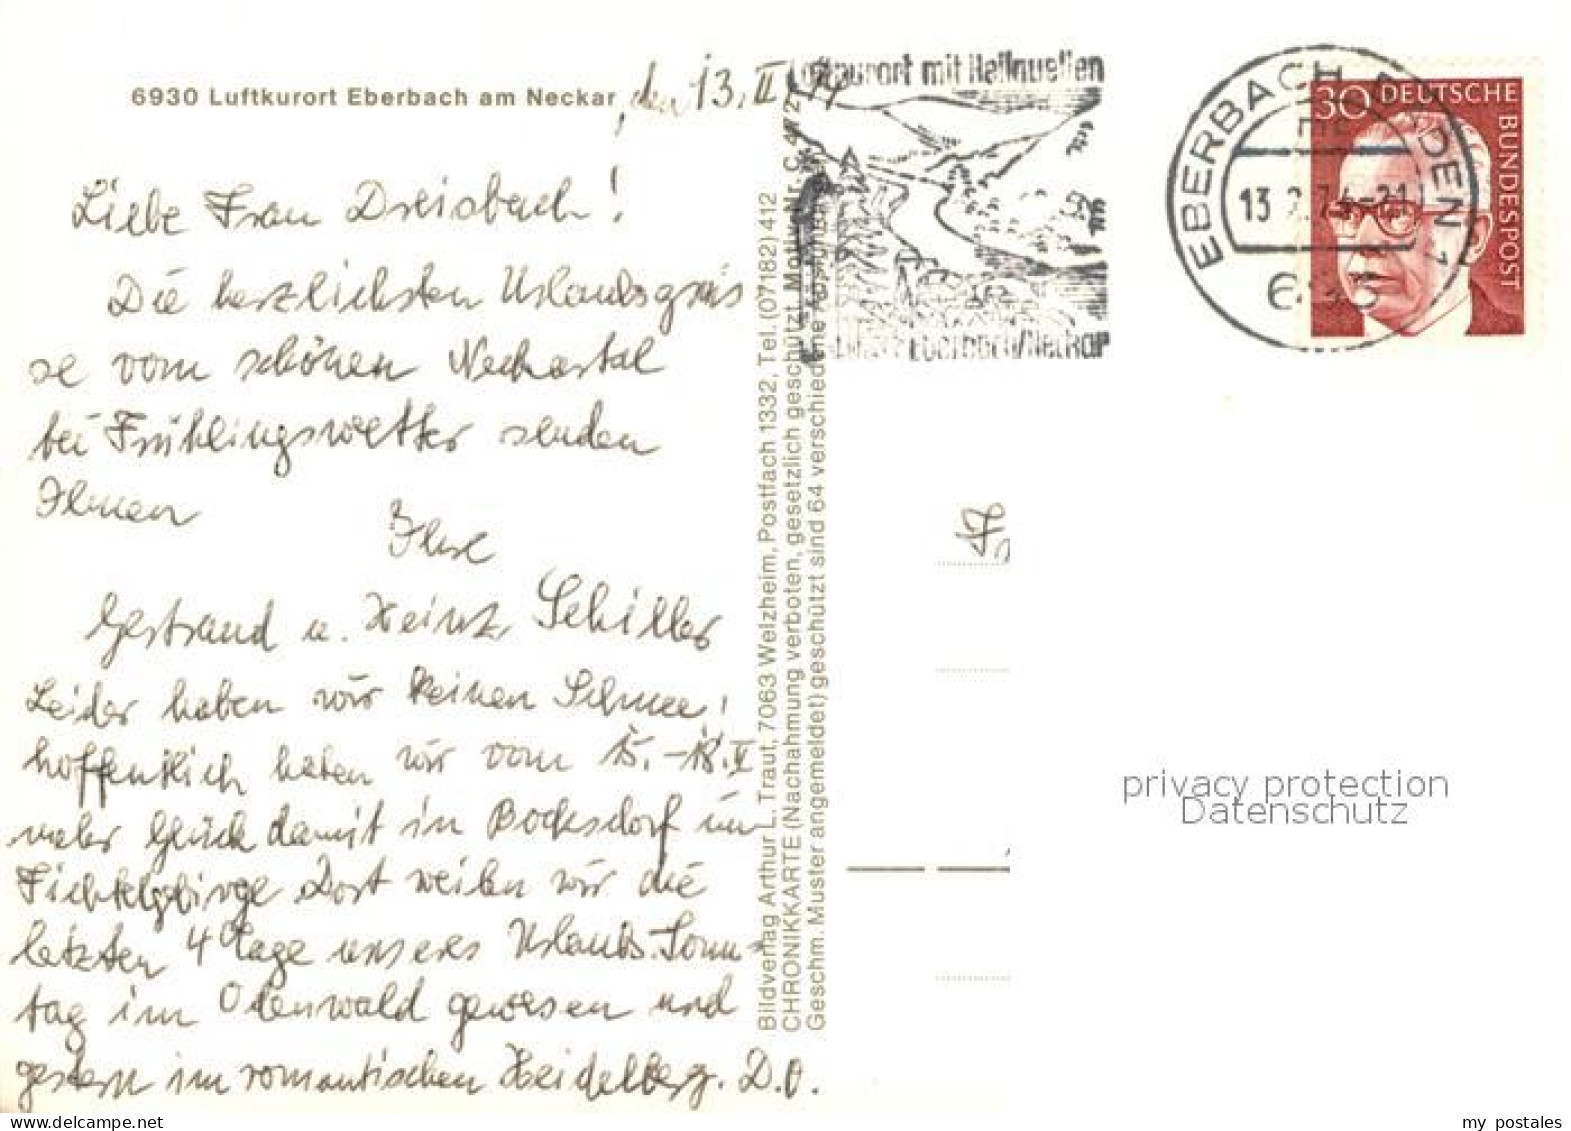 6930 Luftkurort Eberbach am Neckar, den 13. II. 74
Liebe Frau Dreisbach!
Die herzlichsten Urlaubsgrüs
se vom schönen Neckartal
bei Frühlingswetter senden
Ihnen
Ihre
Gertraud u. Heinz Schiller
Leider haben wir keinen Schnee!
hoffentlich haben wir vom 15. - 18. II
mehr Glück damit in Bocksdorf im
Fichtelgebirge. Dort weilen wir die
letzten 4 Tage unseres Urlaubs. Sonn-
tag im Odenwald gewesen und
gestern im romantischen Heidelberg. D.O.
Bildverlag Arthur L. Traut, 7063 Welzheim, Postfach 1332, Tel. (07182) 412
CHRONIKKARTE (Nachahmung verboten, gesetzlich geschützt) Motiv Nr. C
Geschm. Muster angemeldet) geschützt sind 64 verschiedene
Luftkurort mit Heilquellen
Eberbach/Neckar
EBERBACH BADEN 1
13.2.74-21
693
30 DEUTSCHE
BUNDESPOST
privacy protection
Datenschutz
my_postales